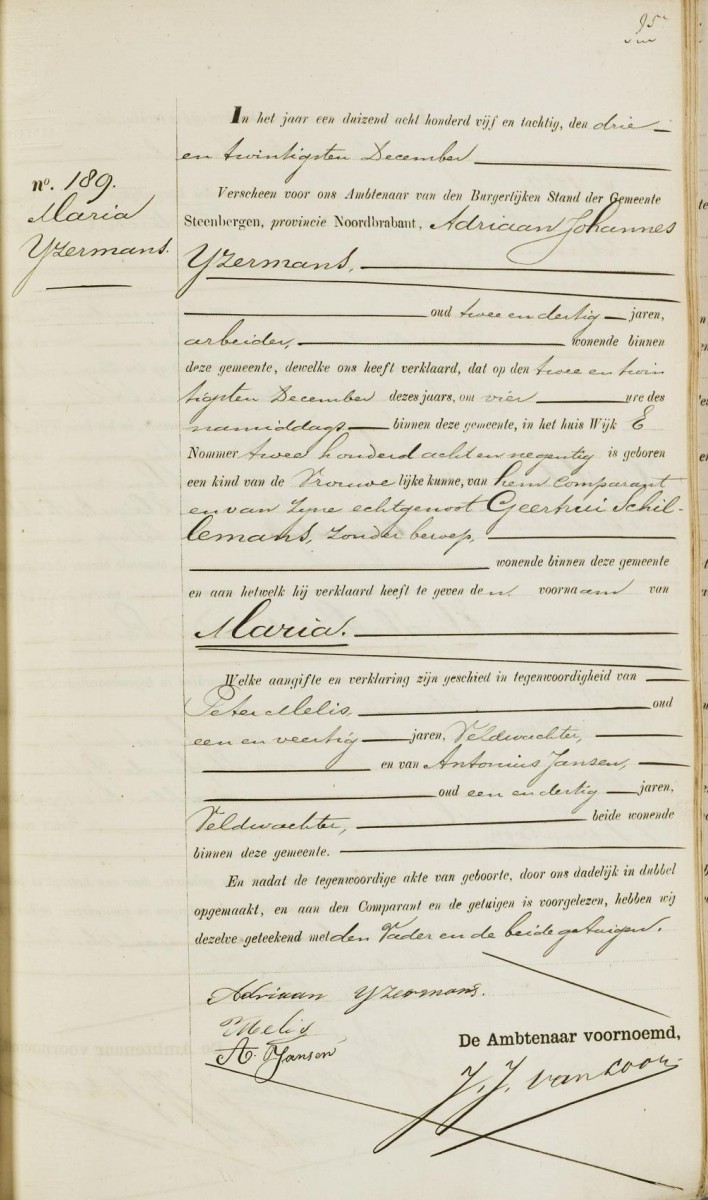 95
nº. 189.
Maria
Yzermans.
In het jaar een duizend acht honderd vijf en tachtig, den drie
en twintigsten December
Verscheen voor ons Ambtenaar van den Burgerlijken Stand der Gemeente
Steenbergen, provincie Noordbrabant, Adriaan Johannes
Yzermans,
oud twee en dertig jaren,
arbeider, wonende binnen
deze gemeente, dewelke ons heeft verklaard, dat op den twee en twin
tigsten December dezes jaars, om vier ure des
namiddags binnen deze gemeente, in het huis Wijk E
Nommer twee honderd acht en negentig is geboren
een kind van de Vrouwelijke kunne, van hem comparant
en van zyne echtgenoot Geertrui Schil-
lemans, zonder beroep,
wonende binnen deze gemeente
en aan hetwelk hij verklaard heeft te geven den voornaam van
Maria.
Welke aangifte en verklaring zijn geschied in tegenwoordigheid van
Peter Melis, oud
een en veertig jaren, Veldwachter,
en van Antonius Jansen,
oud een en dertig jaren,
Veldwachter, beide wonende
binnen deze gemeente.
En nadat de tegenwoordige akte van geboorte, door ons dadelijk in dubbel
opgemaakt, en aan den Comparant en de getuigen is voorgelezen, hebben wij
dezelve geteekend met den Vader en de beide getuigen.
Adriaan Yzermans.
Melis
A. Jansen
De Ambtenaar voornoemd,
J. J. van Loon